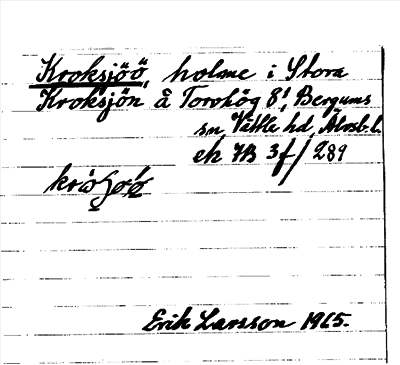 Kroksjöö, holme i Stora
Kroksjön å Torshög 8', Bergums
sn, Vättle hd, Älvsb. l.
ek 7B 3f/289
Erik Larsson 1915.